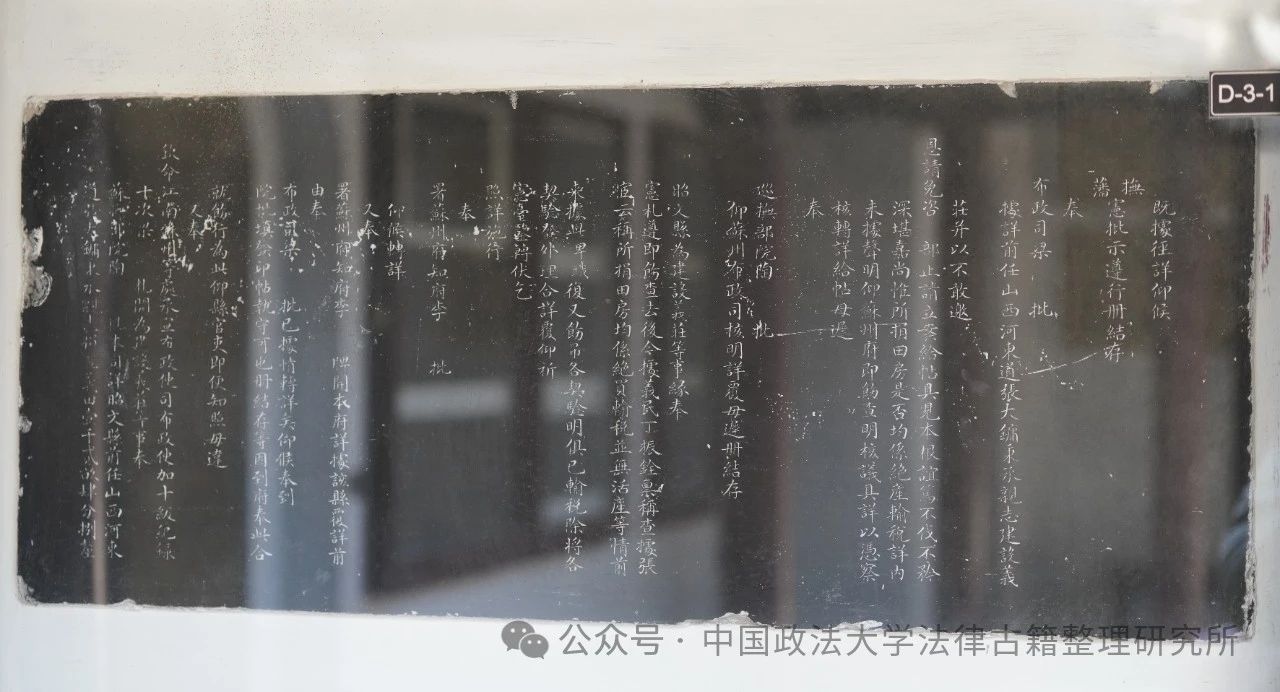 既據徑詳仰候
撫
藩憲批示遵行册結存
奉
布政司梁 批
據詳前任山西河東道張大鏞秉承親志建設義
莊并以不敢邀
恩請免咨 部止請立案給帖具見本根誼篤不伐不矜
深堪嘉尚惟所捐田房是否均係絶產輸稅詳内
未據聲明仰蘇州府即飭查明核議具詳以憑察
核轉詳給帖毋遲
奉
巡撫部院陶 批
仰蘇州布政司核明詳覆毋遲册結存
昭文縣為建設義莊等事緣奉
憲札遵即飭查去後今據義民丁振銓稟稱查據張
云稱所捐田房均係絶買輸稅並無活產等情前
來據此卑職復又飭吊各契驗明俱已輸稅除將各
契驗發外理合詳覆仰祈
憲臺電譯伏乞
照詳施行
奉
署蘇州府知府李 批
仰候轉詳
又奉
署蘇州府知府李 開本府詳據該縣覆詳前
由奉
布政司梁 批已據情轉詳矣仰候奉到
院批填發印帖就守可也册結存等因到府奉此合
就飭行為此仰縣官吏即便知照毋違
又奉
欽命江南蘇等處承宣布政使司布政使加十級紀錄
十次梁 札開為 事奉
蘇 部院陶 本司詳昭文縣前任山西河東
道張大鏞
D-3-1
公众号·中国政法大学法律古籍整理研究所